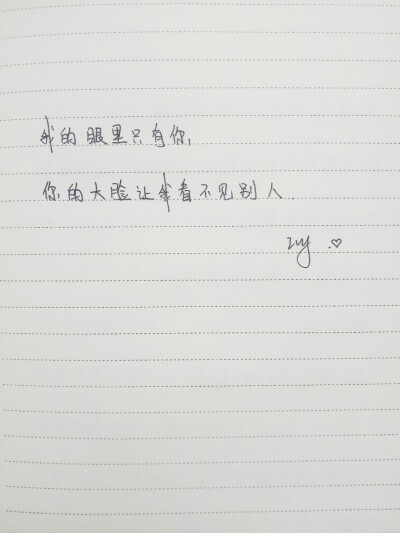 我的眼里只有你,
你的大脸让我看不见别人.
zvy.♡